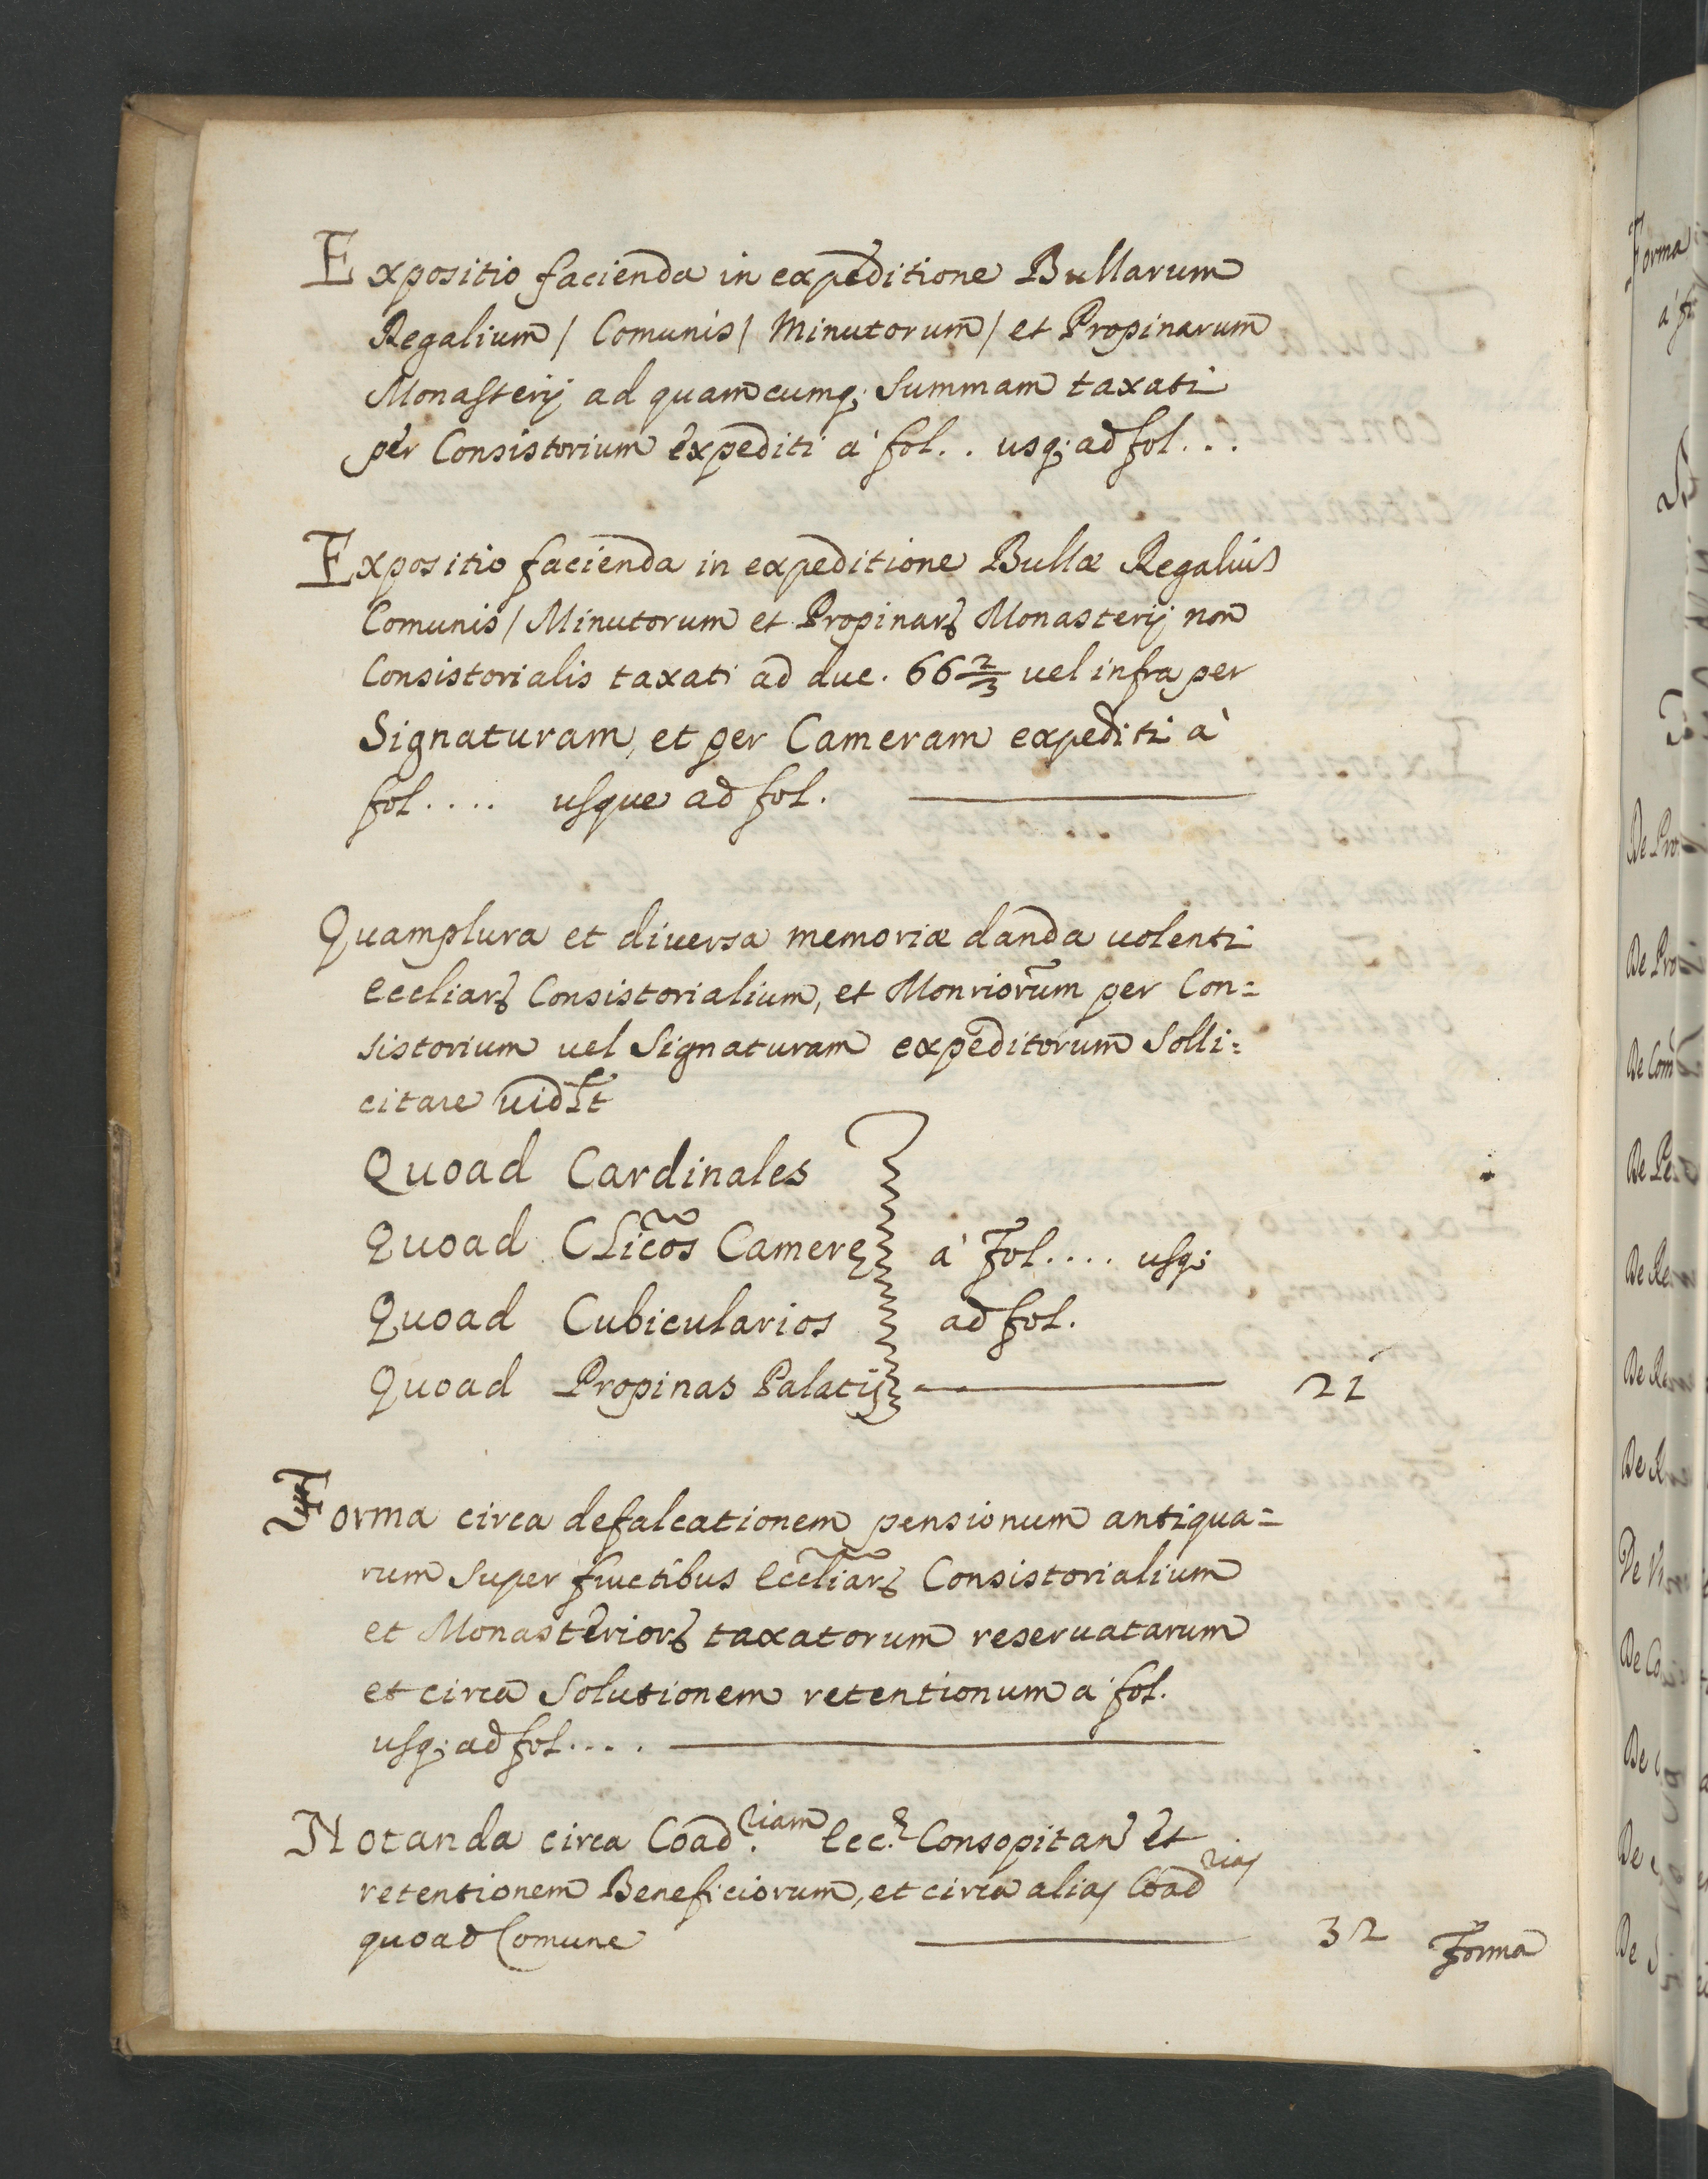 Expositio facienda in expeditione Bullarum
Regalium / Comunis / Minutorum / et Propinarum
Monasterij ad quamcumq; summam taxati
per Consistorium expediti à fol.. usq; ad fol...
Expositio facienda in expeditione Bullæ Regaliũ
Comunis / Minutorum et Propinarꝝ Monasterij non
Consistorialis taxati ad duc. 66 2/3 uel infra per
Signaturam, et per Cameram expediti à
fol.... usque ad fol.
Quamplura et diuersa memoriæ danda uolenti
Eccliarꝝ Consistorialium, et Monriorum per Con=
sistorium uel Signaturam expeditorum Solli=
citare uidlt
Quoad Cardinales
Quoad Clicos Camerę à Fol.... usq;
Quoad Cubicularios ad fol.
Quoad Propinas Palatij 21
Forma circa defalcationem pensionum antiqua=
rum super fructibus Eccliarꝝ Consistorialium
et Monasteriorꝝ taxatorum reseruatarum
et circa Solutionem retentionum à fol.
usq; ad fol....
Notanda circa Coad.riam Ecc. et
retentionem Beneficiorum, et circa alias Coadrias
quoad Comune 32
Forma